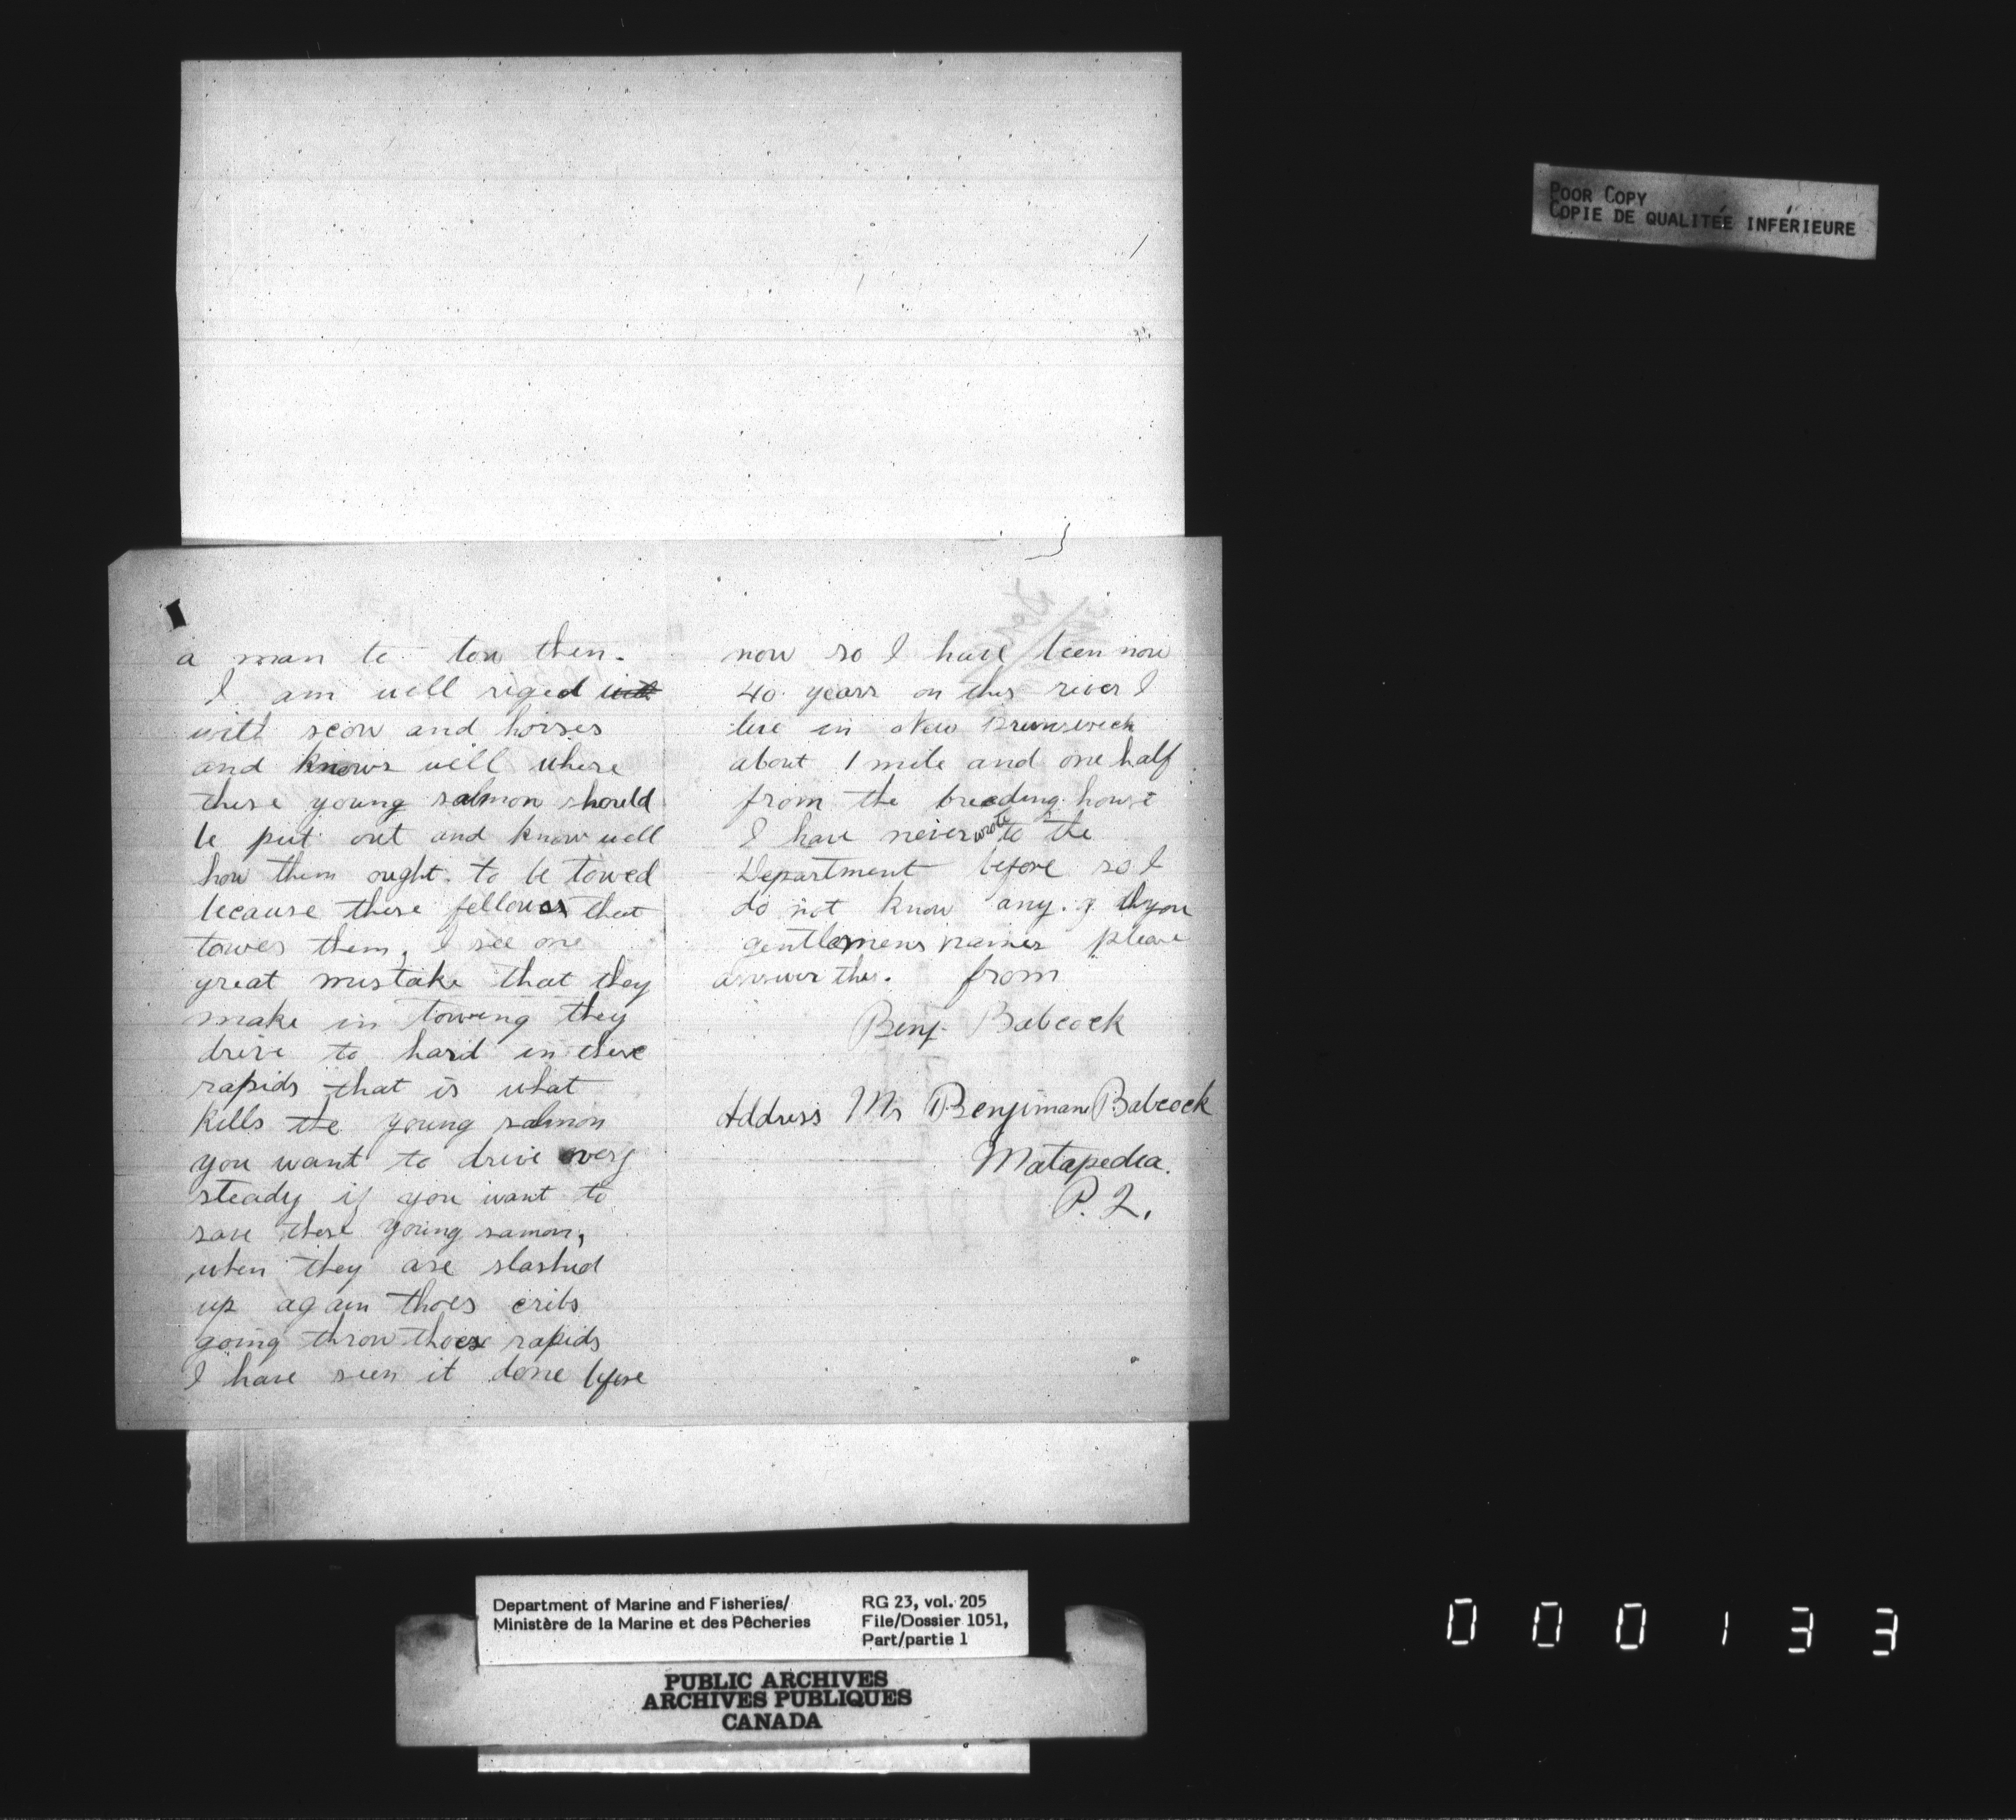 POOR COPY
COPIE DE QUALITÉE INFÉRIEURE
a man to tow then.
I am well riged with
with scow and horses
and knows well where
these young salmon should
be put out and know well
how them ought to be towed
because these fellows that
towes them, I see one
great mistake that they
make in towing they
drive to hard in these
rapids that is what
kills the young salmon
you want to drive very
steady if you want to
save these young samon,
when they are slashed
up again thoes cribs
going throw thoes rapids
I have seen it done before
now so I have been now
40 years on this river I
live in New Brunswick
about 1 mile and one half
from the breeding house
I have never wrote to the
Department before so I
do not know any of you
gentlemens names please
answer this. from
Benj. Babcock
Address Mr Benjimane Babcock
Matapedia.
P. Q.
Department of Marine and Fisheries/
Ministère de la Marine et des Pêcheries
RG 23, vol. 205
File/Dossier 1051,
Part/partie 1
PUBLIC ARCHIVES
ARCHIVES PUBLIQUES
CANADA
000133